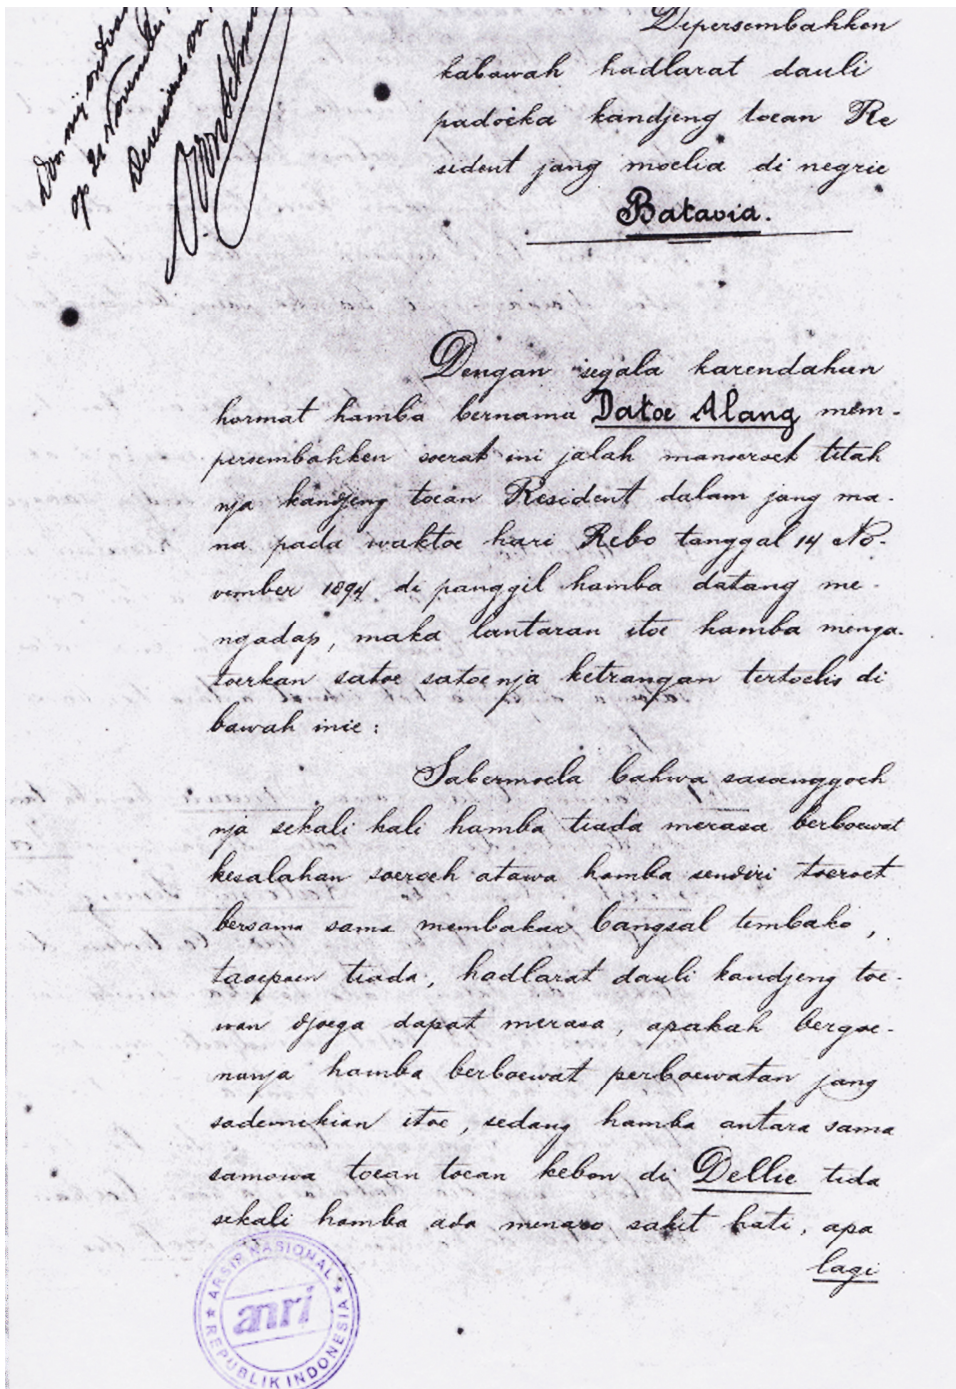 Door mij ontva
op 21 November
Depersembahken
kabawah hadlarat dauli
padoeka kandjeng toean Re
sident jang moelia di negrie
Batavia.
Dengan segala karendahan
hormat hamba bernama Datoe Alang mem-
persembahken soerat ini jalah manoeroet titah
nja kandjeng toean Resident dalam jang ma-
na pada waktoe hari Rebo tanggal 14 No-
vember 1894 di panggil hamba datang me-
ngadap, maka lantaran itoe hamba menga-
toerkan satoe satoenja ketrangan tertoelis di
bawah inie:
Sabermoela bahwa sasoenggoeh
nja sekali kali hamba tiada merasa berboewat
kesalahan soeroeh atawa hamba sendiri toeroet
bersama sama membakar bangsal tembako,
taoepoen tiada, hadlarat dauli kandjeng toe-
wan djoega dapat merasa, apakah bergoe-
nanja hamba berboewat perboewatan jang
sademikian itoe, sedang hamba antara sama
samowa toean toean kebon di Dellie tida
sekali hamba ada menaro sakit hati, apa
lagi
ARSIP NASIONAL
anri
REPUBLIK INDONESIA